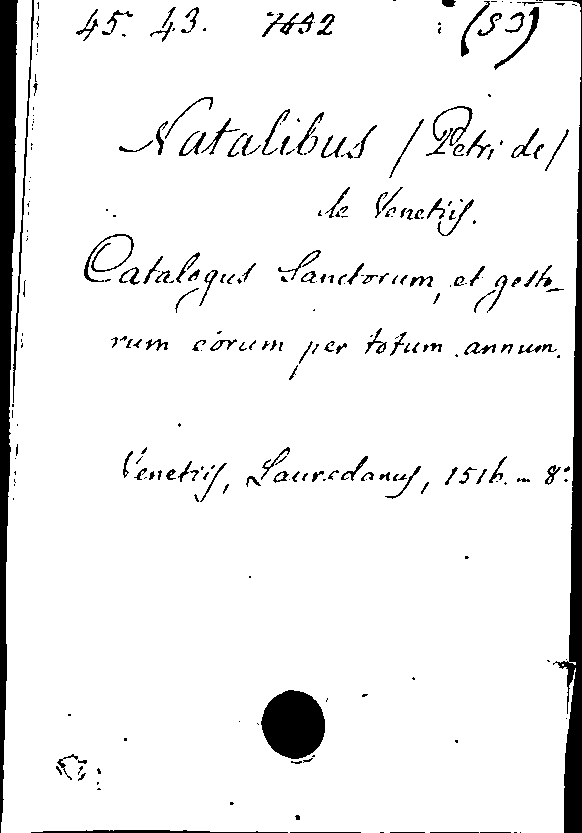 45. 43. 7432 (S J)
Natalibus / Petri de /
de Venetiis.
Catalogus Sanctorum, et gesto-
rum eorum per totum annum.
Venetiis, Lauredanus, 1516. - 8°